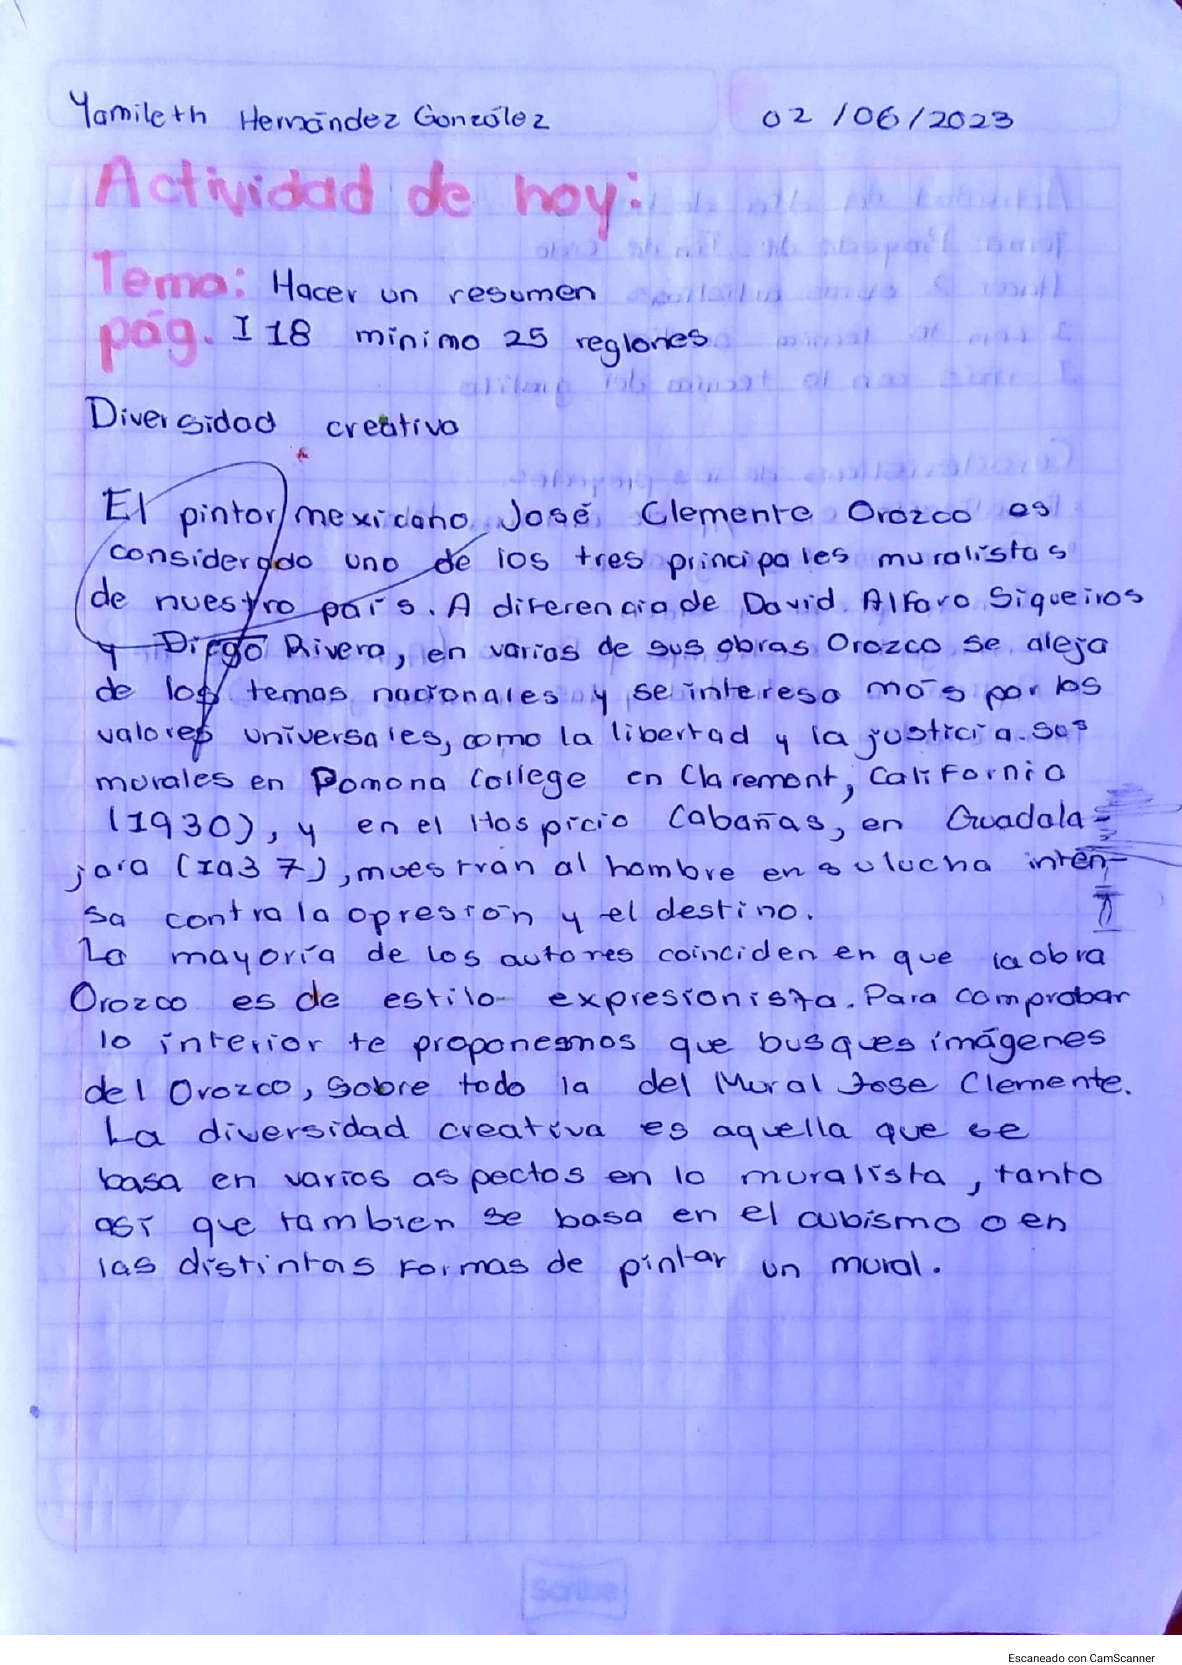 Yamileth Hernández González 02/06/2023
Actividad de hoy:
Tema: Hacer un resumen
pág. 118 minimo 25 reglones
Diversidad creativa
El pintor mexicano José Clemente Orozco es
considerado uno de los tres principales muralistas
de nuestro país. A diferencia de David Alfaro Siqueiros
y Diego Rivera, en varias de sus obras Orozco se aleja
de los temas nacionales y se interesa más por los
valores universales, como la libertad y la justicia. Sus
murales en Pomona College en Claremont, California
(1930), y en el Hospicio Cabañas, en Guadala-
jara (1937), muestran al hombre en su lucha inten-
sa contra la opresión y el destino.
La mayoría de los autores coinciden en que la obra
Orozco es de estilo expresionista. Para comprobar
lo interior te proponesmos que busques imágenes
del Orozco, sobre todo la del Mural Jose Clemente.
La diversidad creativa es aquella que se
basa en varios aspectos en lo muralista, tanto
así que tambien se basa en el cubismo o en
las distintas formas de pintar un mural.
Scribe
Escaneado con CamScanner